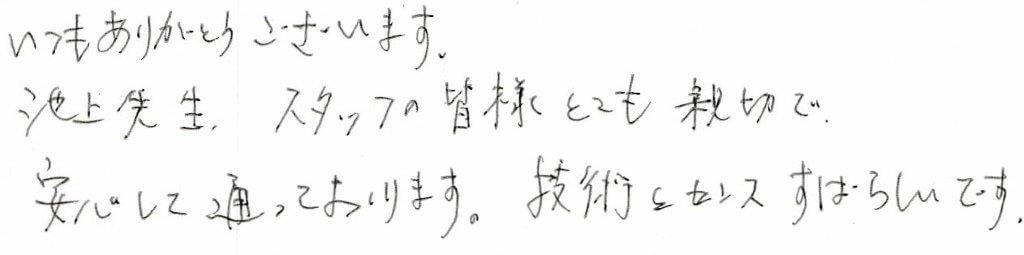 いつもありがとうございます。
池上先生、スタッフの皆様とても親切で、
安心して通っております。技術とセンスすばらしいです。